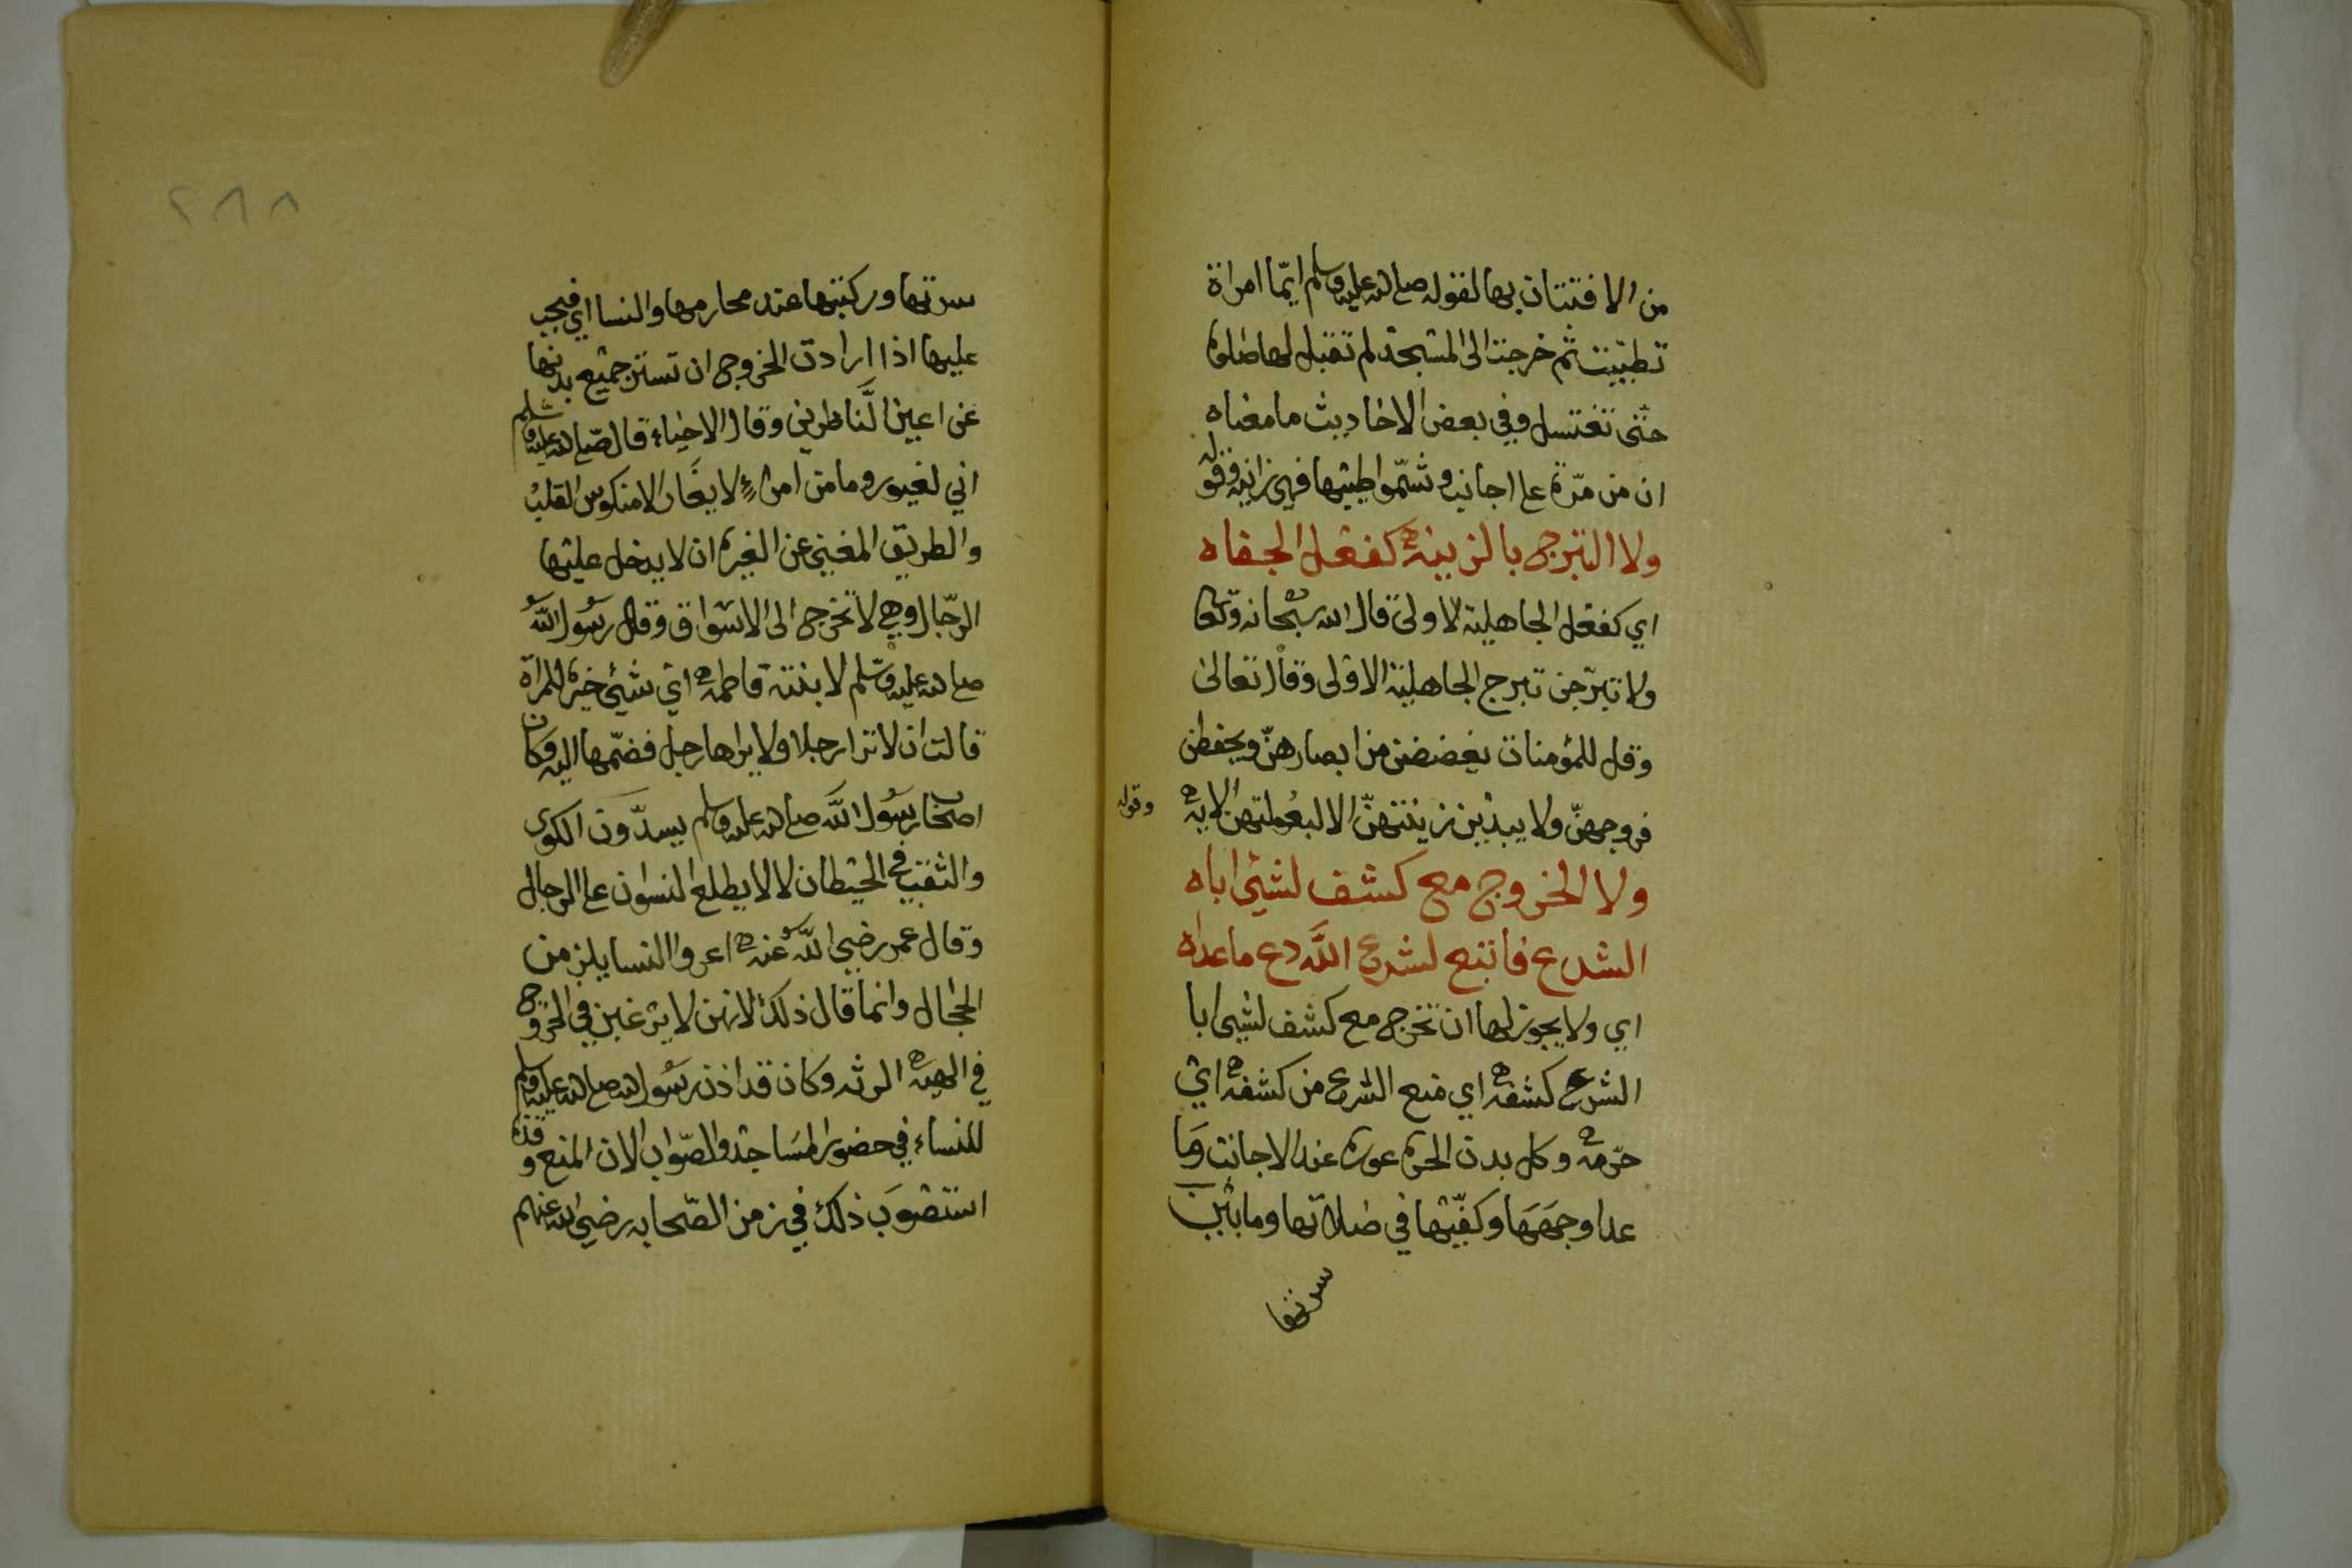 من الافتتان بها لقوله صلى الله عليه وسلم ايّما امراة
تطيّبت ثم خرجت الى المسجد لم تقبل لها صلوة
حتى تغتسل وفي بعض الاحاديث ما معناه
ان من مرّة على اجانب وشمّوا طيبها فهي زانية وقوله
ولا التبرج بالزينة كفعل الجفاه
اي كفعل الجاهلية الاولى قال الله سبحانه وتعا
ولا تبرّجن تبرج الجاهلية الاولى وقال تعالى
وقل للمؤمنات يغضضن من ابصارهنّ ويحفظن
فروجهنّ ولا يبدين زينتهنّ الا لبعولتهن الاية
وقوله
ولا الخروج مع كشف لشئ اباه
الشرع فاتبع لشرع الله دع ماعداه
اي ولا يجوز لها ان تخرج مع كشف لشئ ابا
الشرع كشفه اي منع الشرع من كشفه اي
حرّمه وكل بدن الحرة عورة عند الاجانب وما
عدا وجهها وكفّيها في صلاتها وما بين
سرتها
٢٨٨
سرتها وركبتها عند محارمها والنسا اي فيجب
عليها اذا ارادت الخروج ان تستر جميع بدنها
عن اعين الناظرين وقال الاحياء قال صلى الله عليه وسلم
اني لغيور وما من امرءٍ لا يغار الا منكوس القلب
والطريق المغني عن الغيرة ان لا يدخل عليها
الرّجال وهي لا تخرج الى الاسواق وقال رسول الله
صلى الله عليه وسلم لابنته فاطمة اي شئ خير للمرأة
قالت ان لا ترا رجلا ولا يراها رجل فضمّها اليه وكان
اصحاب رسول الله صلى الله عليه وسلم يسدّون الكوى
والثقب في الحيطان لالا يطلع النسوان على الرجال
وقال عمر رضي الله عنه اعروا النسا يلزمن
الحجال وانما قال ذلك لانهن لا يرغبن في الخروج
في الهيئة الرثه وكان قد اذن رسول الله صلى الله عليه وسلم
للنساء في حضور المساجد والصّواب الان المنع وقد
استصوب ذلك في زمن الصّحابه رضي الله عنهم